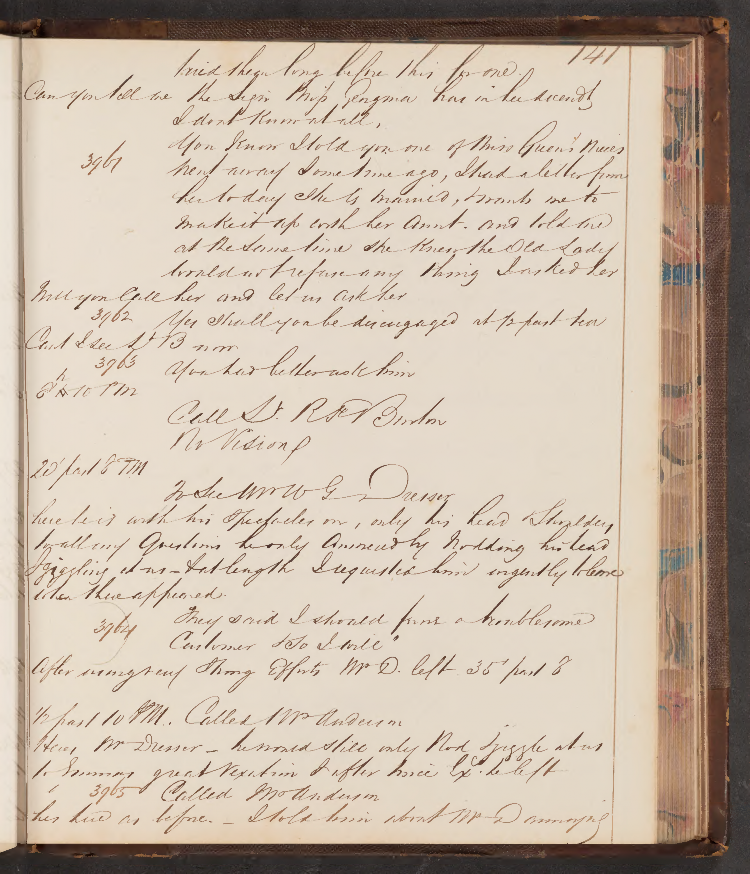 141
tried them long before this for one.
Can you tell me the Sign Miss Pengma has in her ascendt
I dont Know at all,
3961 You Know I told you one of Miss Queen's Nieces
went away Some time ago, I had a letter from
her today She is married, & wants me to
make it up with her Aunt. and told me
at the Same time She Knew the Old Lady
would not refuse any thing I asked her
Will you Call her and let us ask her
3962 Yes Shall you be disengaged at ½ past ten
Can't I see Lt. B now
3963 You had better ask him
8h 10 PM
Call Lt. R F Burton
No Vision
20' past 8 PM
To See Mr W G Dresser
here he is with his Spectacles on, only his head & Shoulders
to all my Questions he only Answered by Nodding his head
giggling at us — at length I requested him urgently to leave
when there appeared.
3964 They said I should find a troublesome
Customer & So I will"
After using very Strong Efforts Mr D. left 35' past 8
½ past 10 PM. Called Mr Anderson
Here Mr Dresser — he would Still only Nod & giggle at us
to Emmas great Vexation & after twice Exg. he left
" 3965 Called Mr Anderson
hes tied as before. — I told him about Mr D annoying